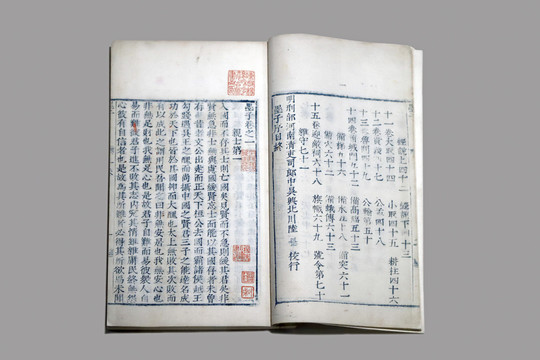 經說上四十二 經說下四十三
十一卷大取四十四 小取四十五 耕柱四十六
十二卷貴義四十七 公孟四十八
十三卷魯問四十九 公輸第五十
十四卷備城門五十二
備高臨五十三 備突六十一
備梯五十六
備穴六十二 備蛾傅六十三
十五卷迎敵祠六十八 旗幟六十九 號令第七十
雜守七十一
墨子序目終
明刑部河南清吏司郎中吳興北川陸 校行
墨子卷之一
親士第一
入國而不存其士則亡國矣見賢而不急則緩其君矣非
賢無急非士無與慮國緩賢忘士而能以其國存者未曾
有也昔者文公出走而正天下桓公去國而霸諸侯越王
勾踐遇吳王之醜而尚攝中國之賢君三子之能達名成
功於天下也皆於其國抑而大醜也太上無敗其次敗而
有以成此之謂用民吾聞之曰非無安居也我無安心也
非無足財也我無足心也是故君子自難而易彼衆人自
易而難彼君子進不敗其志內究其情雖雜庸民終無怨
心彼有自信者也是故為其所難者必得其所欲焉未聞